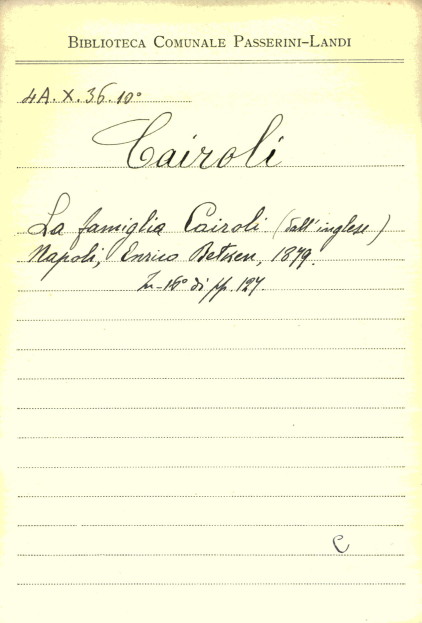 BIBLIOTECA COMUNALE PASSERINI-LANDI
4A.X.36.10°
Cairoli
La famiglia Cairoli (dall'inglese)
Napoli, Enrico Detken, 1879.
In-16° di pp. 127.
C